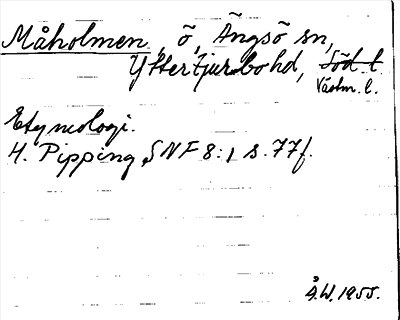 Måholmen, ö, Ängsö sn,
Yttertjurbo hd, Söd. l.
Västm. l.
Etymologi.
H. Pipping, SNF 8:1 s. 77f.
Å.W. 1955.